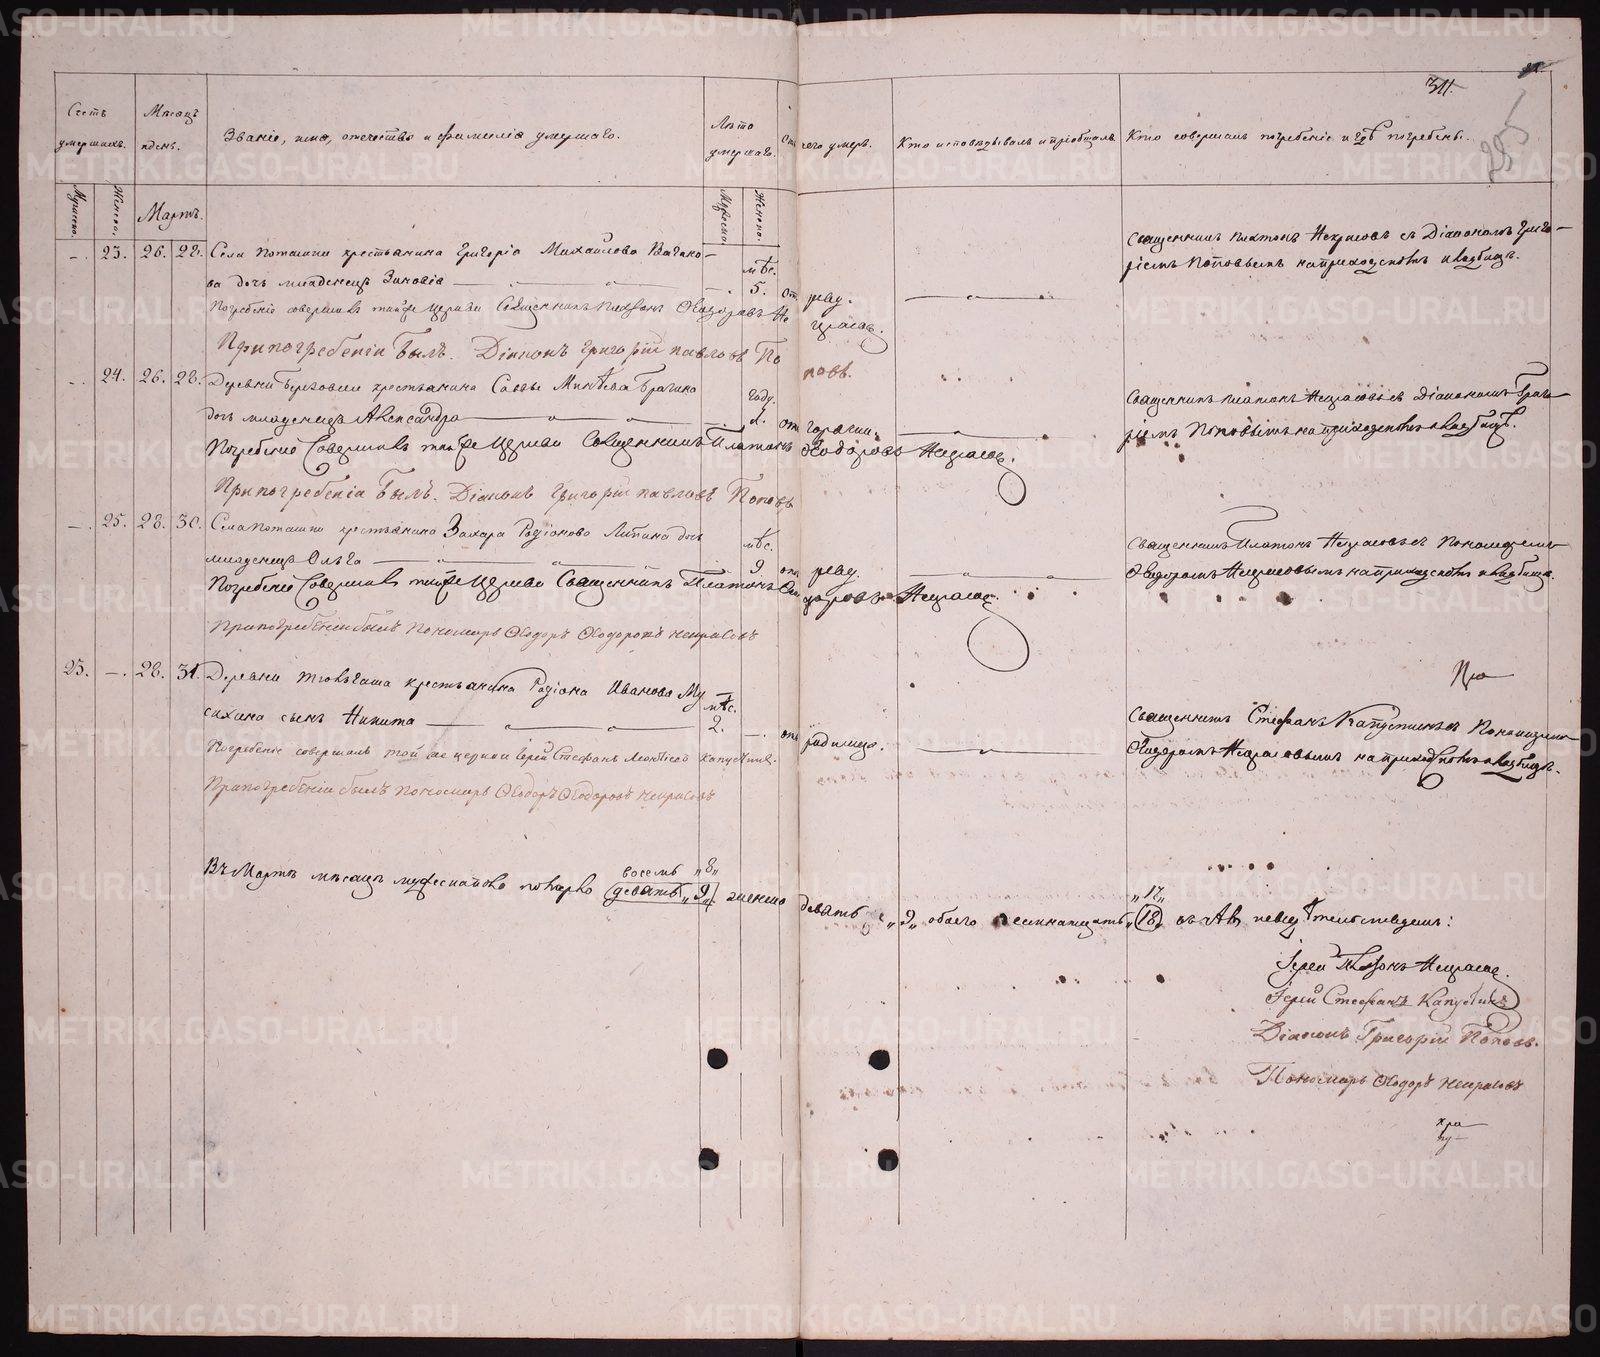 METRIKI.GASO-URAL.RU
311.
Счетъ умершихъ.
Мѣсяцъ и день.
Званіе, имя, отечество и фамилія умершаго.
Лѣта умершаго.
Отъ чего умеръ.
Кто исповѣдывалъ и пріобщалъ.
Кто совершалъ погребеніе и гдѣ погребены.
Мужеска.
Женска.
Мартъ.
Мужеска.
Женска.
23. 26. 28. Села Поташки крестьянина Григорія Михайлова
ва дочь младенецъ Зиновія
мѣс. 5.
отъ реву.
Священникъ Платонъ Некрасовъ съ Діакономъ Григо-
ріемъ Поповымъ на приходскомъ кладбищѣ.
Погребеніе совершалъ той же церкви Священникъ Платонъ Ѳеодоровъ Не
красовъ.
При погребеніи былъ. Діаконъ Григорій Павловъ По
повъ.
24. 26. 28. Деревни Березовки крестьянина Саввы
дочь младенецъ Александра
году. 1.
отъ горячки.
Священникъ Платонъ Некрасовъ съ Діакономъ Григо-
ріемъ Поповымъ на приходскомъ кладбищѣ.
Погребеніе Совершалъ той же церкви Священникъ Платонъ Ѳеодоровъ Некрасовъ.
При погребеніи былъ. Діаконъ Григорій Павловъ Поповъ
25. 28. 30. Села Поташки крестьянина Захара Родіонова Липина дочь
младенецъ Ольга
мѣс. 9
отъ реву.
Священникъ Платонъ Некрасовъ съ Пономаремъ
Ѳеодоромъ Некрасовымъ на приходскомъ кладбищѣ.
Погребеніе Совершалъ той же церкви Священникъ Платонъ Ѳеодоровъ Некрасовъ.
При погребеніи былъ Пономарь Ѳеодоръ Ѳеодоровъ Некрасовъ
23. 28. 31. Деревни крестьянина Родіона Иванова Му
сихина сынъ Никита
мѣс. 2.
отъ родимца.
Священникъ Стефанъ Капустинъ съ Пономаремъ
Ѳеодоромъ Некрасовымъ на приходскомъ кладбищѣ.
Погребеніе совершалъ той же церкви Іерей Стефанъ Леонтіевъ Капустинъ.
При погребеніи былъ Пономарь Ѳеодоръ Ѳеодоровъ Некрасовъ
восемь „8„ „17„
Въ Мартѣ мѣсяцѣ мужеска пола померло девять „9„ женска девять „9„ обоего семнатцать „18„
Іерей Платонъ Некрасовъ.
Іерей Стефанъ Капустинъ
Діаконъ Григорій Поповъ.
Пономарь Ѳеодоръ Некрасовъ